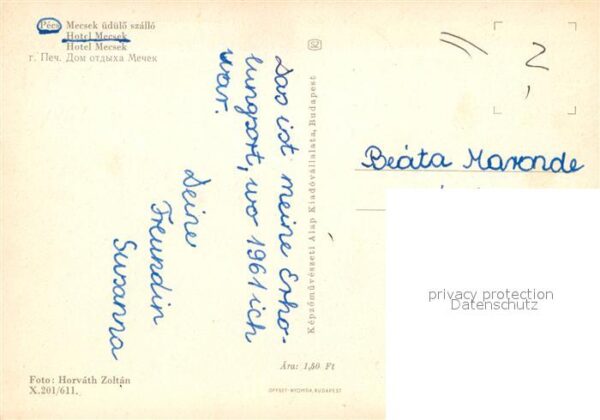 Pécs Mecsek üdülő szálló
Hotel Mecsek
Hotel Mecsek
г. Печ. Дом отдыха Мечек
Das ist meine Erho-
lungsort, wo 1961 ich
war.
Deine
Freundin
Susanna
Képzőművészeti Alap Kiadóvállalata, Budapest
2
Beáta Maronde
privacy protection
Datenschutz
Ára: 1,50 Ft
Foto: Horváth Zoltán
X.201/611.
OFFSET-NYOMDA BUDAPEST